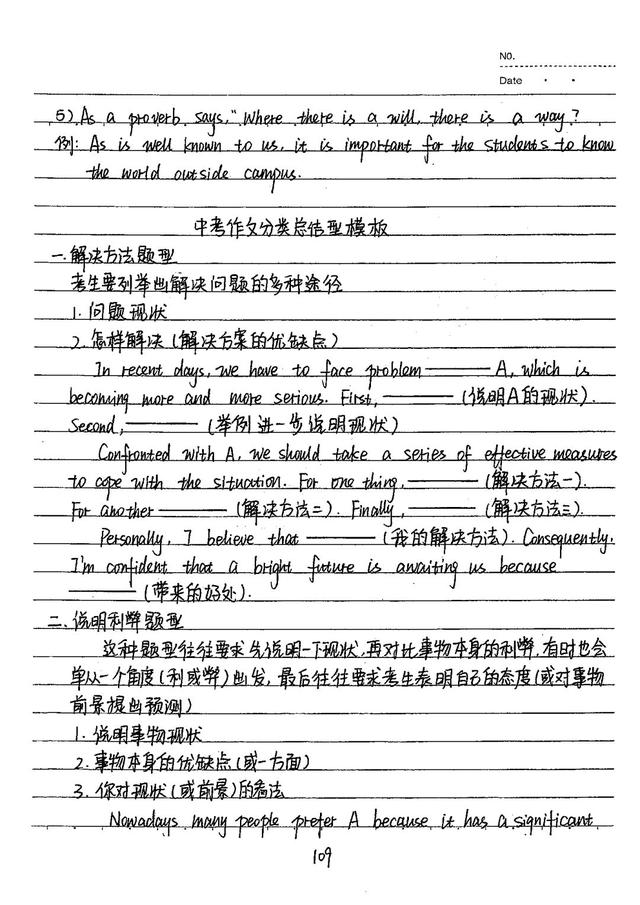 NO.
Date
5) As a proverb says, "Where there is a will, there is a way?
例: As is well known to us, it is important for the students to know
the world outside campus.
中考作文分类总结型模板
一.解决方法题型
考生要列举出解决问题的多种途径
1.问题现状
2.怎样解决(解决方案的优缺点)
In recent days, we have to face problem ——— A, which is
becoming more and more serious. First, ——— (说明A的现状).
Second, ——— (举例进一步说明现状)
Confronted with A, we should take a series of effective measures
to cope with the situation. For one thing, ——— (解决方法一).
For another ——— (解决方法二). Finally, ——— (解决方法三).
Personally, I believe that ——— (我的解决方法). Consequently,
I'm confident that a bright future is awaiting us because
——— (带来的好处).
二.说明利弊题型
这种题型往往要求先说明一下现状,再对比事物本身的利弊,有时也会
单从一个角度(利或弊)出发,最后往往要求考生表明自己的态度(或对事物
前景提出预测)
1.说明事物现状
2.事物本身的优缺点(或一方面)
3.你对现状(或前景)的看法
Nowadays many people prefer A because it has a significant
109